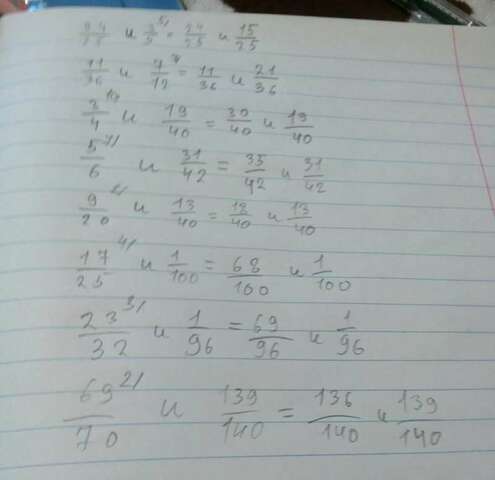 24/25 и 3/5 5/ = 24/25 и 15/25
11/36 и 7/12 3/ = 11/36 и 21/36
3/4 10/ и 19/40 = 30/40 и 19/40
5/6 7/ и 31/42 = 35/42 и 31/42
9/20 2/ и 13/40 = 18/40 и 13/40
17/25 4/ и 1/100 = 68/100 и 1/100
23/32 3/ и 1/96 = 69/96 и 1/96
69/70 2/ и 139/140 = 136/140 и 139/140